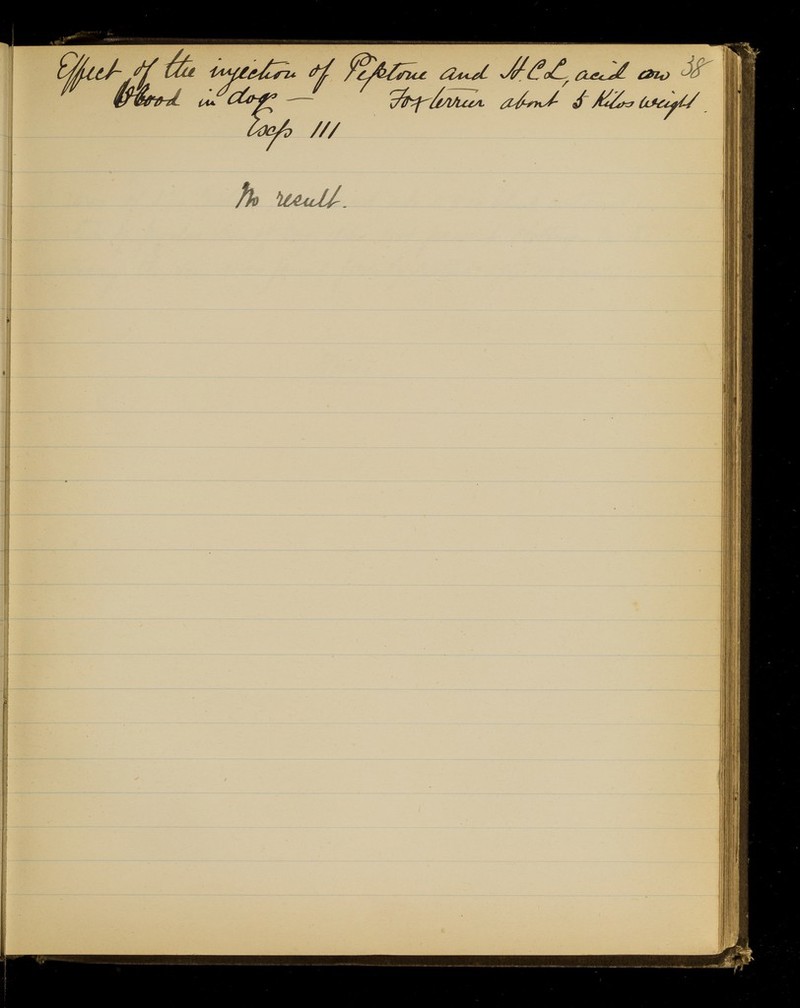 Effect of the injection of Peptone and H.CL, acid on 38
blood in dogs — Fox terrier about 5 Kilos weight.
Exp III
No result.